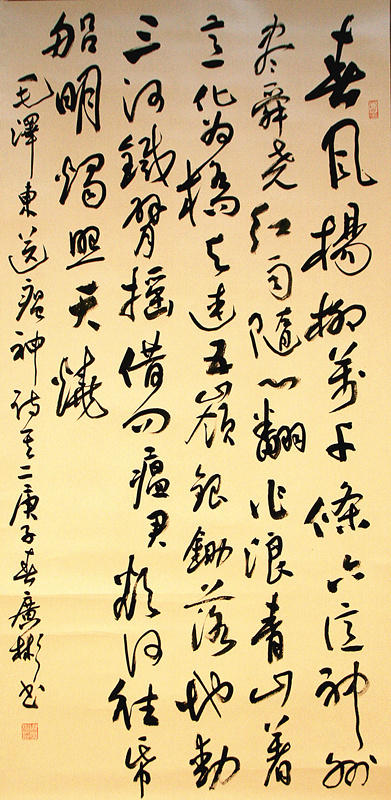 春風楊柳萬千條六億神州
尽舜堯紅雨隨心翻作浪青山着
意化为橋天連五嶺銀鋤落地動
三河鐵臂摇借问瘟君欲何往紙
船明燭照天燒
毛澤東送瘟神詩其二庚子春廣彬书